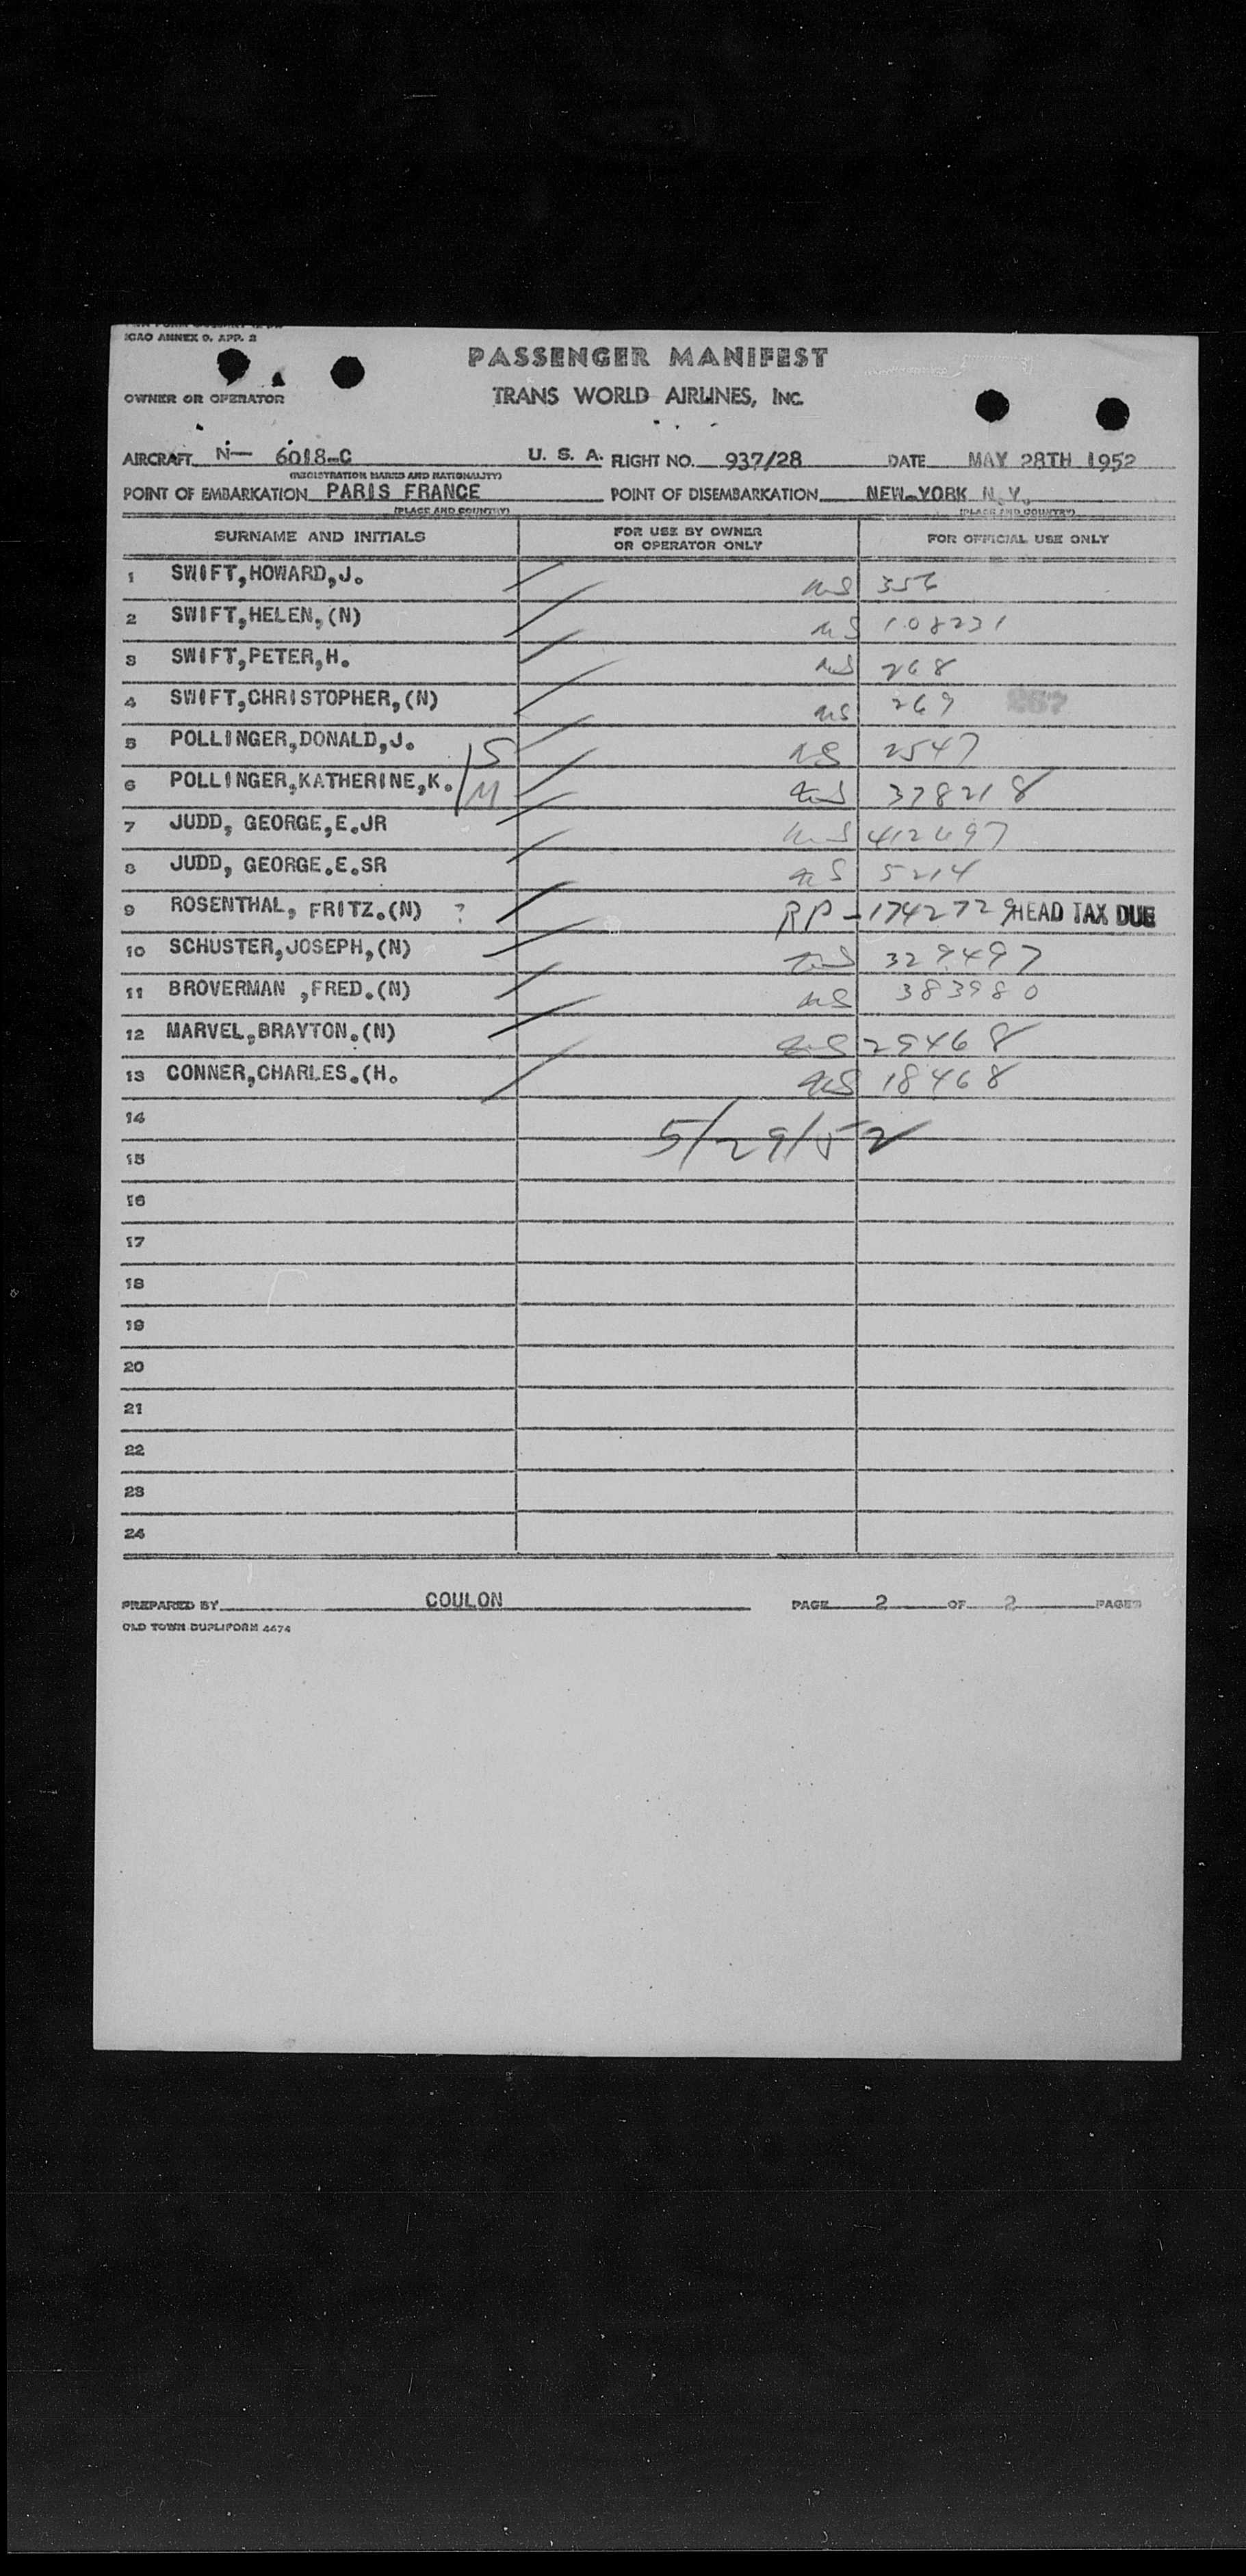 ICAO ANNEX 9, APP. 2
PASSENGER MANIFEST
OWNER OR OPERATOR
TRANS WORLD AIRLINES, INC.
AIRCRAFT N— 6018-C U. S. A. FLIGHT NO. 937/28 DATE MAY 28TH 1952
(REGISTRATION MARKS AND NATIONALITY)
POINT OF EMBARKATION PARIS FRANCE POINT OF DISEMBARKATION NEW-YORK N.Y.
(PLACE AND COUNTRY) (PLACE AND COUNTRY)
SURNAME AND INITIALS FOR USE BY OWNER OR OPERATOR ONLY FOR OFFICIAL USE ONLY
1 SWIFT,HOWARD,J. 356
2 SWIFT,HELEN,(N) 108231
3 SWIFT,PETER,H. 268
4 SWIFT,CHRISTOPHER,(N) 269 267
5 POLLINGER,DONALD,J. S 2547
6 POLLINGER,KATHERINE,K. M 378218
7 JUDD, GEORGE,E.JR 412697
8 JUDD, GEORGE.E.SR 5214
9 ROSENTHAL, FRITZ.(N) ? RP-1742729 HEAD TAX DUE
10 SCHUSTER,JOSEPH,(N) 329497
11 BROVERMAN ,FRED.(N) 383980
12 MARVEL,BRAYTON.(N) 29468
13 CONNER,CHARLES.(H. 18468
14
5/29/52
15
16
17
18
19
20
21
22
23
24
PREPARED BY COULON PAGE 2 OF 2 PAGES
OLD TOWN DUPLIFORM 4474